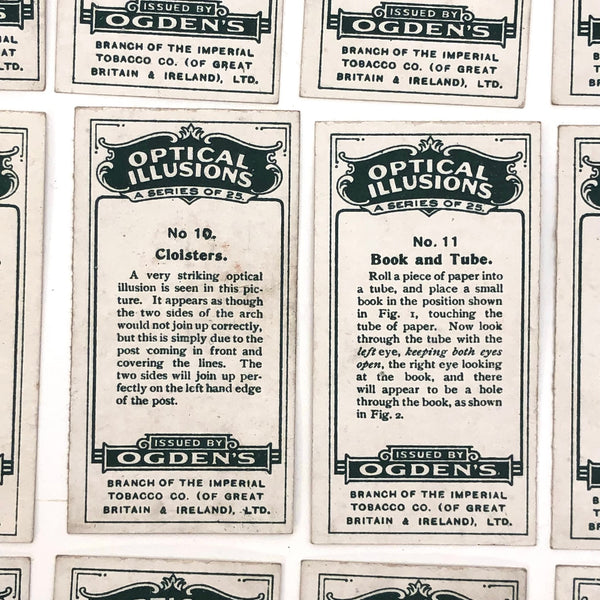 ISSUED BY
OGDEN'S
BRANCH OF THE IMPERIAL
TOBACCO CO. (OF GREAT
BRITAIN & IRELAND), LTD.
ISSUED BY
OGDEN'S
BRANCH OF THE IMPERIAL
TOBACCO CO. (OF GREAT
BRITAIN & IRELAND), LTD.
OPTICAL
ILLUSIONS
A SERIES OF 25.
No 10.
Cloisters.
A very striking optical
illusion is seen in this pic-
ture. It appears as though
the two sides of the arch
would not join up correctly,
but this is simply due to the
post coming in front and
covering the lines. The
two sides will join up per-
fectly on the left hand edge
of the post.
ISSUED BY
OGDEN'S
BRANCH OF THE IMPERIAL
TOBACCO CO. (OF GREAT
BRITAIN & IRELAND), LTD.
OPTICAL
ILLUSIONS
A SERIES OF 25.
No. 11
Book and Tube.
Roll a piece of paper into
a tube, and place a small
book in the position shown
in Fig. 1, touching the
tube of paper. Now look
through the tube with the
left eye, keeping both eyes
open, the right eye looking
at the book, and there
will appear to be a hole
through the book, as shown
in Fig. 2.
ISSUED BY
OGDEN'S
BRANCH OF THE IMPERIAL
TOBACCO CO. (OF GREAT
BRITAIN & IRELAND), LTD.